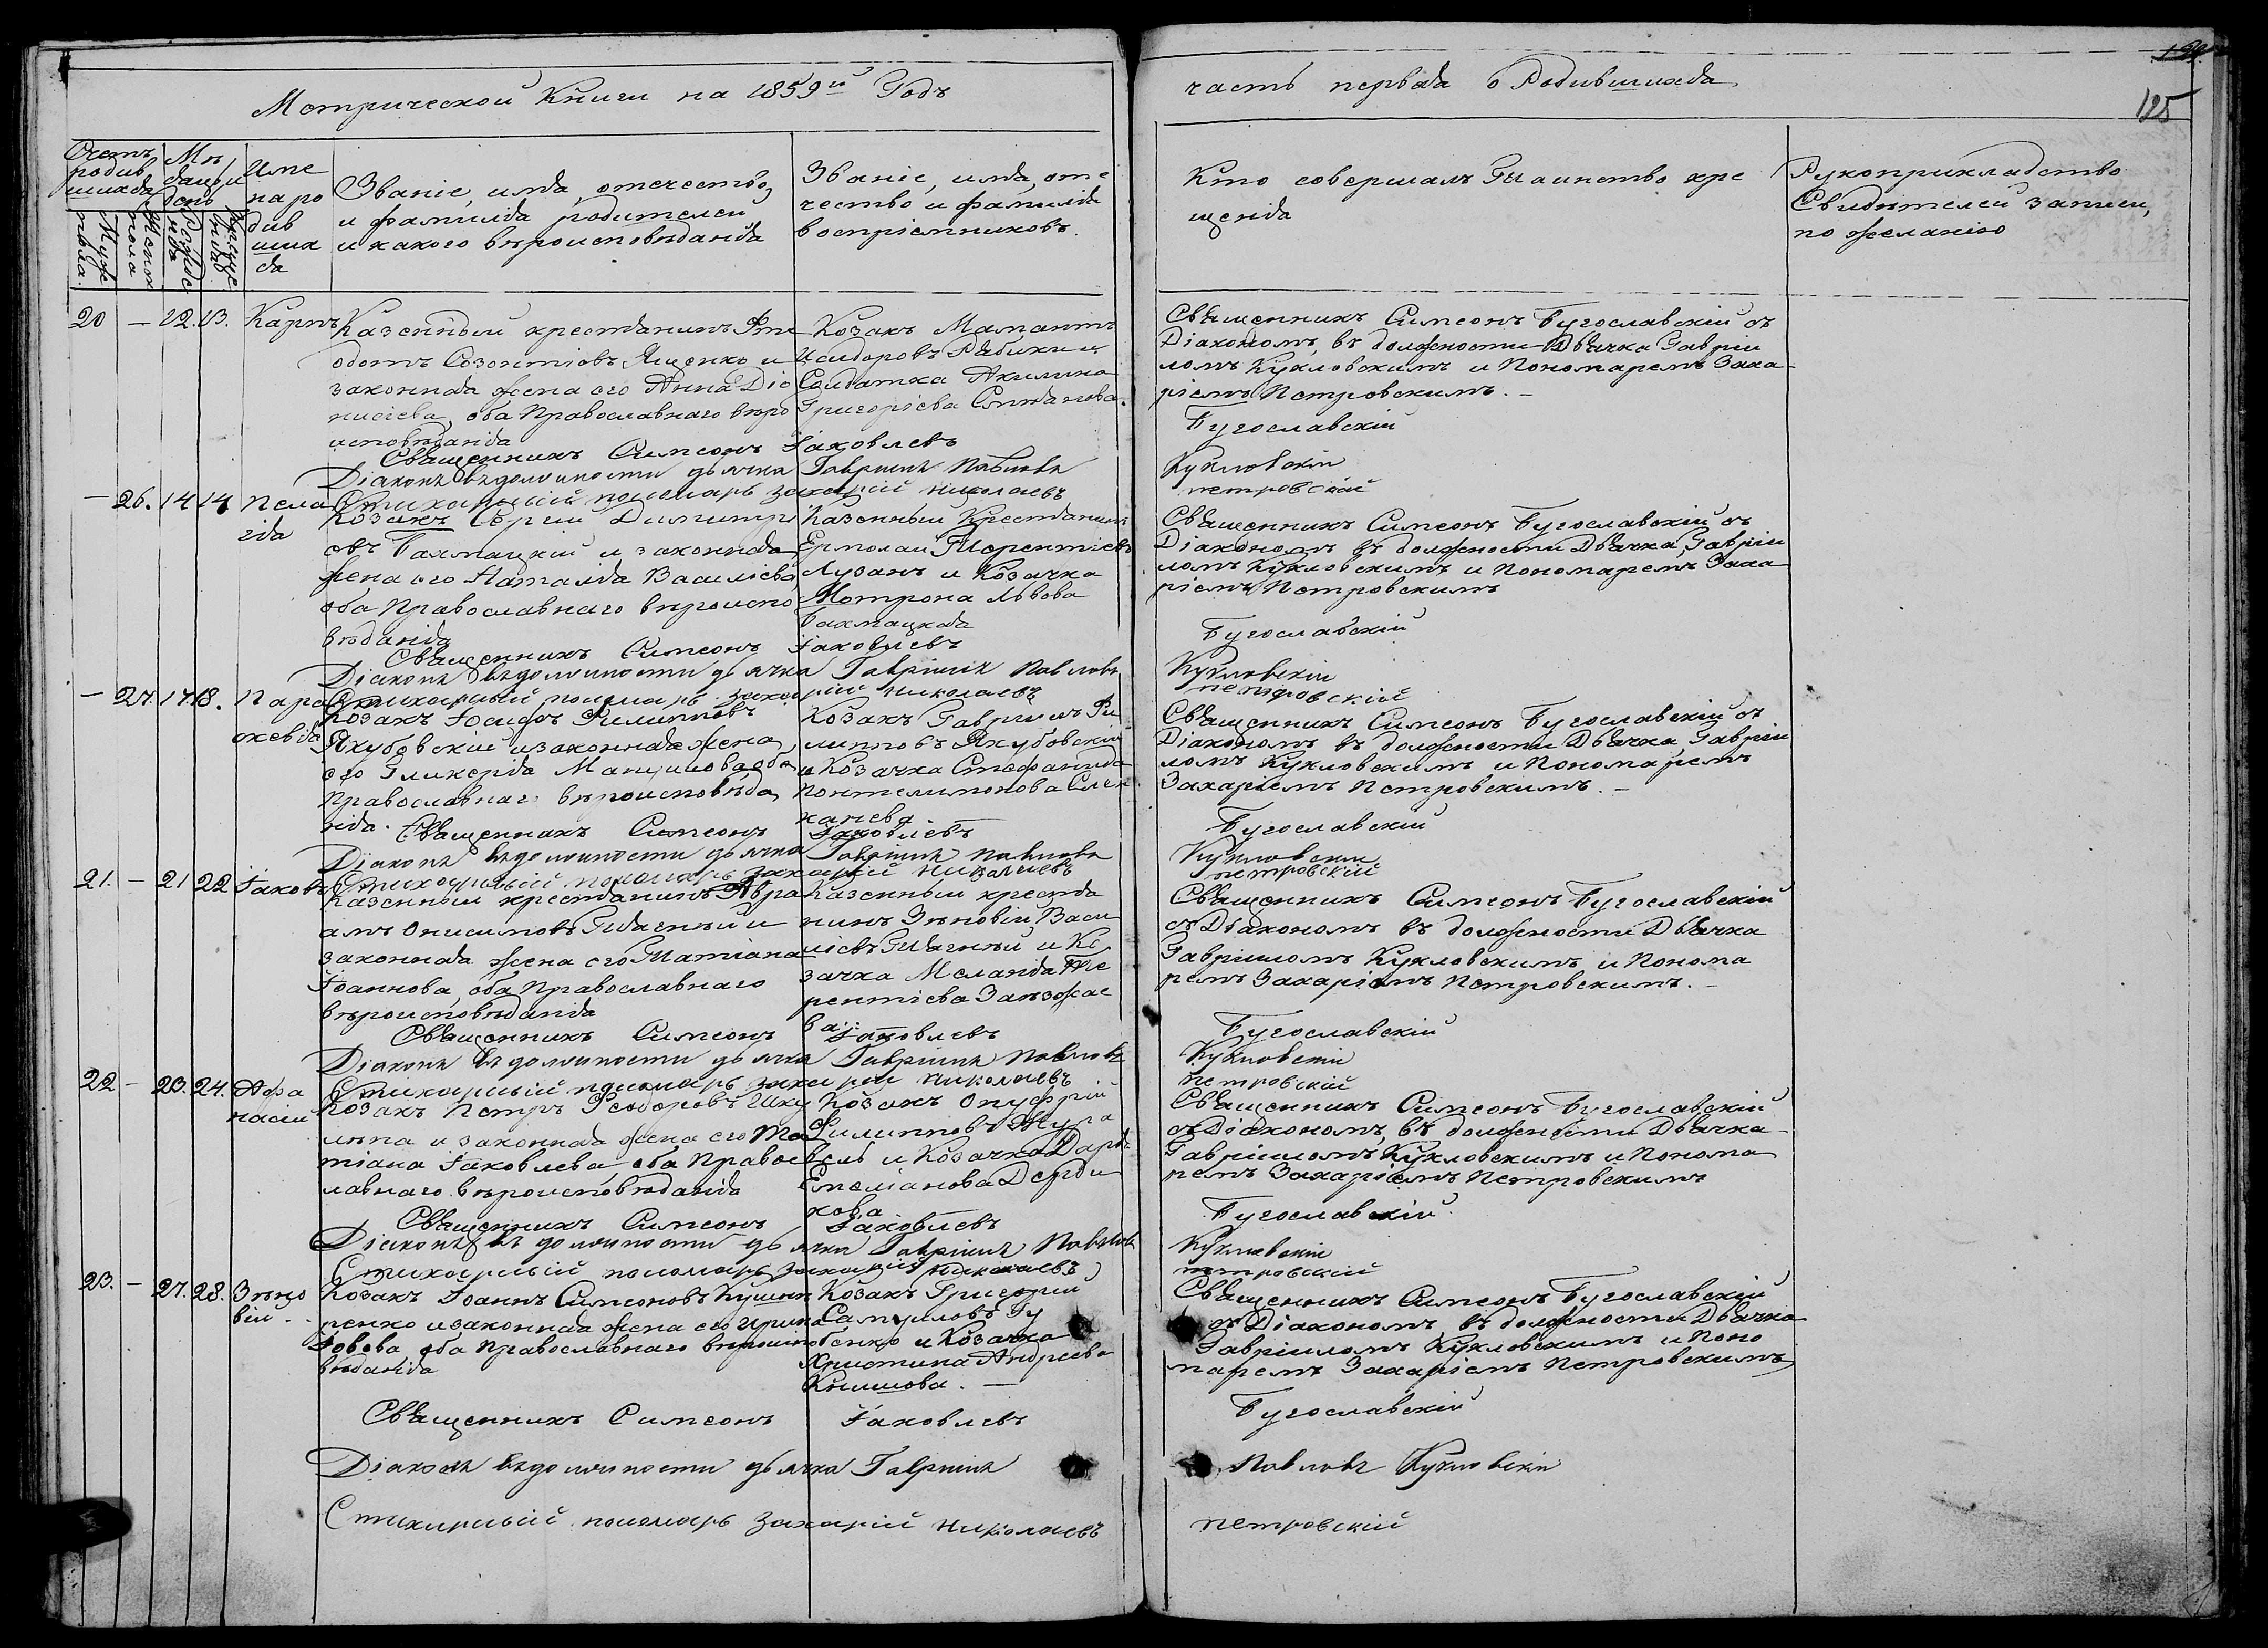 Метрической Книги на 1859й Годъ
часть первая о Родившихся
125
Счетъ родив шихся
Муж пола.
Женск пола
Мѣ сяцъ и день
Рожде нія
Креще нія
Име на ро див ших ся
Званіе, имя, отечество,
и фамилія родителей
и какого вѣроисповѣданія
Званіе, имя, оте
чество и фамилія
воспріемниковъ.
Кто совершалъ Таинство кре
щенія
Рукоприкладство
Свидѣтелей записи,
по желанію
20 — 12. 13. Карпъ
Казенный крестьянинъ Өе
одотъ Созонтіовъ Ященко и
законная жена его Анна Діо
нисіева, оба Православнаго вѣро
исповѣданія
Козакъ Мамантъ
Исидоровъ Рабики и
Солдатка Акилина
Григоріева
Священникъ Симеонъ Бугославскій съ
Діакономъ, въ должности Дьячка Гаврии
ломъ Кукловскимъ и Пономаремъ Заха
ріемъ Петровскимъ. —
Священникъ Симеонъ Іаковлевъ Бугославскій
Діаконъ въ должности дьячка Гавриилъ Павловъ Кукловскій
Стихарный пономарь Захарій Николаевъ Петровскій
— 26. 14 14 Пела
гія
Козакъ Сергій Димитрі
евъ Бахмацкій и законная
жена его Наталія Василіева,
оба Православнаго вѣроиспо
вѣданія
Казенный Крестьянинъ
Ермолай Терентіевъ
Лузанъ и Козачка
Мотрона Львова
Бахмацкая
Священникъ Симеонъ Бугославскій съ
Діакономъ въ должности Дьячка, Гаврии
ломъ Кукловскимъ и Пономаремъ Заха
ріемъ Петровскимъ
Священникъ Симеонъ Іаковлевъ Бугославскій
Діаконъ въ должности дьячка Гавріилъ Павловъ Кукловскій
Стихарный пономарь Захарій Николаевъ Петровскій
— 27. 17. 18. Пара
скевія
Козакъ Іосифъ Филипповъ
Якубовскій и законная жена
его Гликерія оба
Православнаго вѣроисповѣда
нія.
Козакъ Гавриилъ Фи
липповъ Якубовскій
и Козачка Стефанида
Понтелимонова
Священникъ Симеонъ Бугославскій съ
Діакономъ въ должности Дьячка, Гаврии
ломъ Кукловскимъ и Пономаремъ
Захаріемъ Петровскимъ. —
Священникъ Симеонъ Іаковлевъ Бугославскій
Діаконъ въ должности дьячка Гавріилъ Павловъ Кукловскій
Стихарный пономарь Захарій Николаевъ Петровскій
21. — 21 22 Іаковъ
Казенный крестьянинъ Авра
амъ Онисимовъ и
законная жена его Татіана
Іоаннова, оба Православнаго
вѣроисповѣданія
Казенный крестья
нинъ Зѣновій Васи
ліевъ и Ко
зачка Меланія Те
рентіева
Священникъ Симеонъ Бугославскій
съ Діакономъ въ должности Дьячка
Гавріиломъ Кукловскимъ и Понома
ремъ Захаріемъ Петровскимъ. —
Священникъ Симеонъ Іаковлевъ Бугославскій
Діаконъ въ должности дьячка Гавріилъ Павловъ Кукловскій
Стихарный пономарь Захарій Николаевъ Петровскій
22 — 23. 24. Афа
насій
Козакъ Петръ Өеодоровъ Шку
лѣпа и законная жена его Та
тіана Іаковлева, оба Правос
лавнаго вѣроисповѣданія
Козакъ Онуфрій
Филипповъ Жура
вель и Козачка Дарья
Емеліанова
Священникъ Симеонъ Бугославскій
съ Діакономъ, въ должности Дьячка
Гавріиломъ Кукловскимъ и Понома
ремъ Захаріемъ Петровскимъ
Священникъ Симеонъ Іаковлевъ Бугославскій
Діаконъ въ должности дьячка Гавріилъ Павловъ Кукловскій
Стихарный пономарь Захарій Николаевъ Петровскій
23. — 27. 28. Зѣно
вій.
Козакъ Іоаннъ Симеоновъ Кушни
ренко и законная жена его Ирина
Іовова, оба Православнаго вѣроиспо
вѣданія
Козакъ Григорий
Самуиловъ Гу
бенко и Козачка
Христина Андреева
Климова. —
Священникъ Симеонъ Бугославскій
съ Діакономъ, въ должности Дьячка
Гавріиломъ Кукловскимъ и Поно
маремъ Захаріемъ Петровскимъ
Священникъ Симеонъ Іаковлевъ Бугославскій
Діаконъ въ должности дьячка Гавріилъ Павловъ Кукловскій
Стихарный пономарь Захарій Николаевъ Петровскій